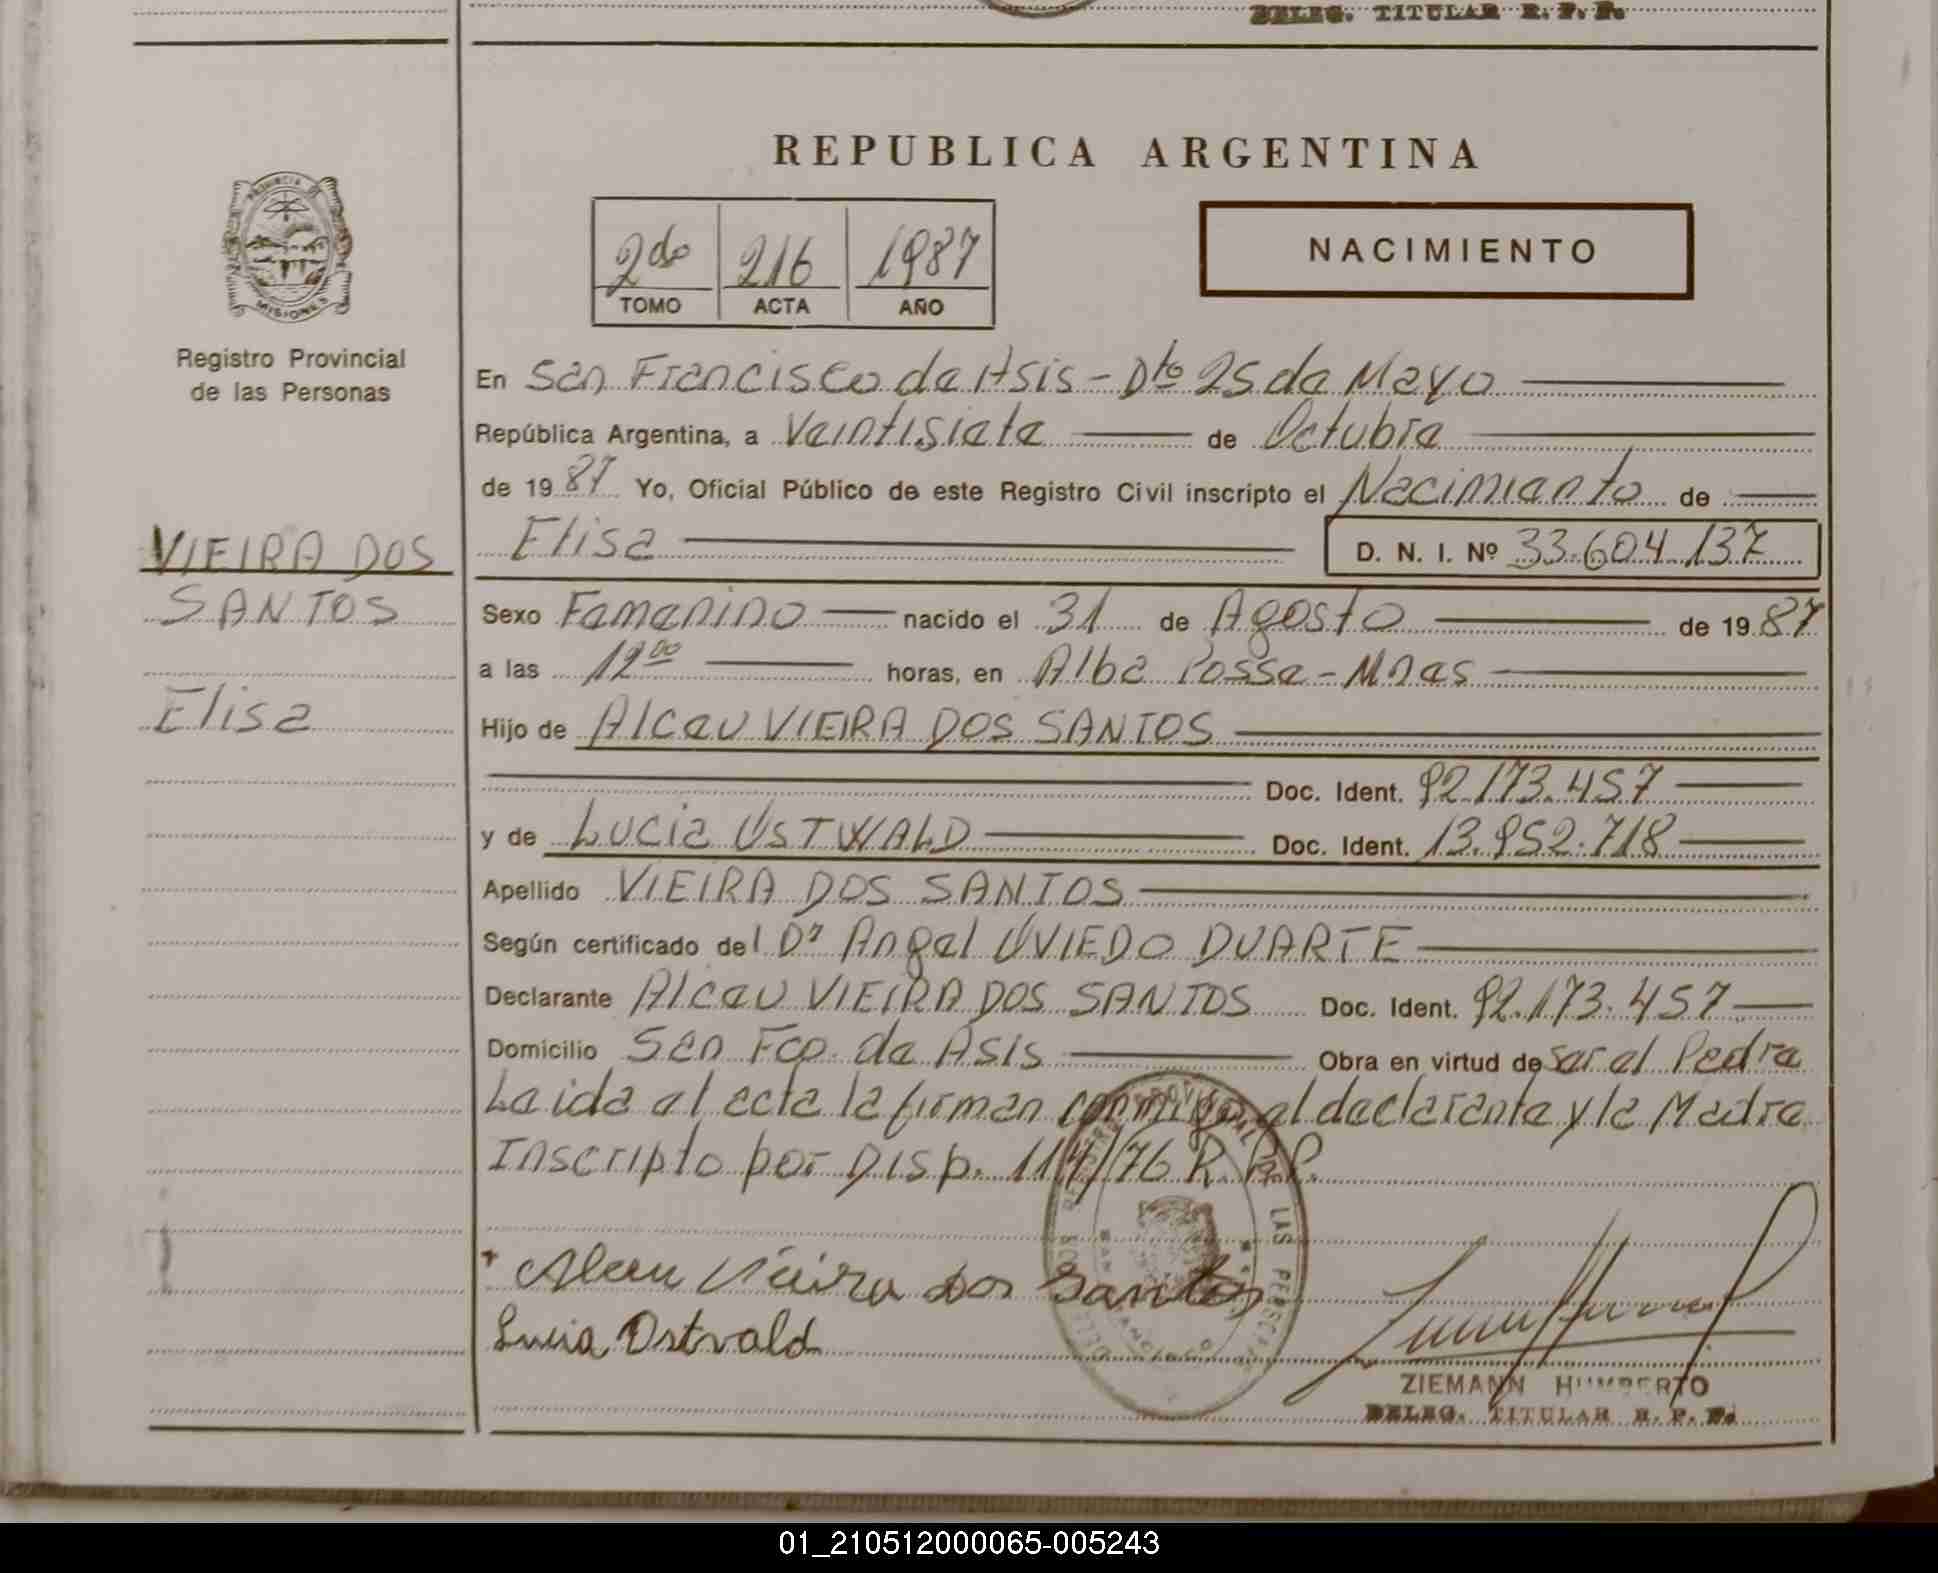 DELEG. TITULAR R. P. P.
REPUBLICA ARGENTINA
PROVINCIA DE
MISIONES
2do 216 1987
TOMO ACTA AÑO
NACIMIENTO
Registro Provincial
de las Personas
VIEIRA DOS
SANTOS
Elisa
En San Francisco de Asis - Dto 25 de Mayo
República Argentina, a Veintisiete de Octubre
de 1987 Yo, Oficial Público de este Registro Civil inscripto el Nacimiento de
Elisa D. N. I. Nº 33.604.137
Sexo Femenino nacido el 31 de Agosto de 1987
a las 12 00 horas, en Alba Posse - Mnes
Hijo de Alceu VIEIRA DOS SANTOS
Doc. Ident. 92.173.457
y de Lucia OSTWALD Doc. Ident. 13.952.718
Apellido VIEIRA DOS SANTOS
Según certificado del Dr Angel OVIEDO DUARTE
Declarante Alceu VIEIRA DOS SANTOS Doc. Ident. 92.173.457
Domicilio San Fco. de Asis Obra en virtud de ser el Padre
Leida el acta la firman conmigo el declarante y la Madre
Inscripto por Disp. 114/76 R.P.P.
Alceu Vieira dos Santos
Lucia Ostvald
ZIEMANN HUMBERTO
DELEG. TITULAR R. P. P.
01_210512000065-005243